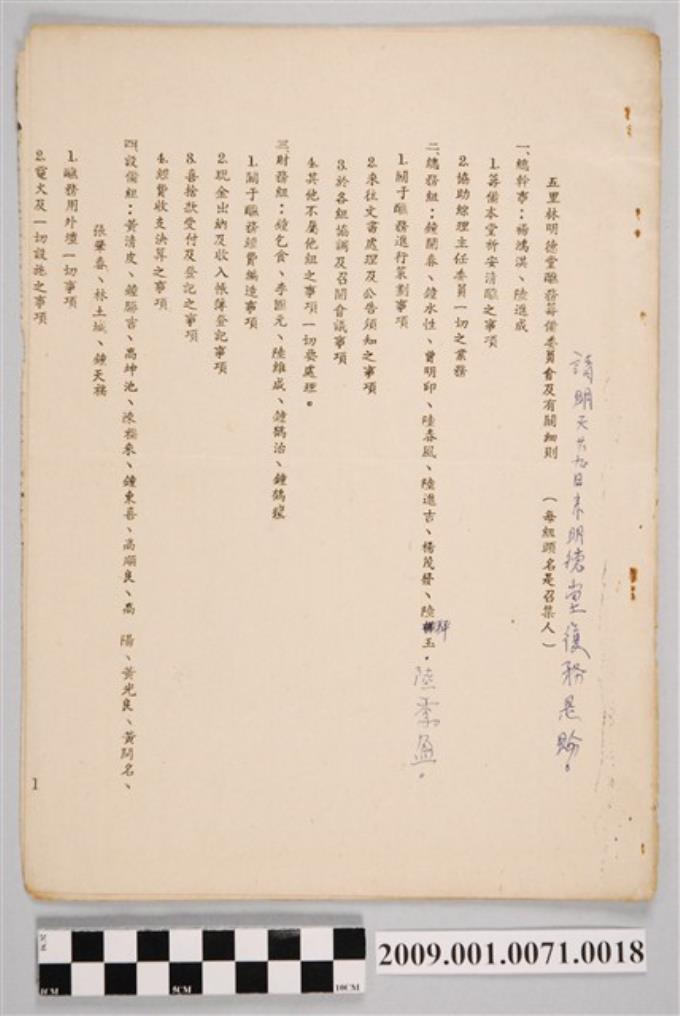 請明天廿九日來明德堂復務是盼。
五里林明德堂醮務籌備委員會及有關細則　(每組頭名是召集人)
一、總幹事：楊鴻淇、陸進成
1.籌備本堂祈安清醮之事項
2.協助綜理主任委員一切之業務
二、總務組：鐘開春、鐘水性、曾明印、陸春風、陸進吉、楊茂發、陸玉。陸季盈。
1.關于醮務進行策劃事項
2.來往文書處理及公告須知之事項
3.於各組協調及召開會議事項
4.其他不屬他組之事項一切要處理。
三、財務組：鐘乞食、李國元、陸維成、鐘鵠治、鐘鶴
1.關于醮務經費編造事項
2.現金出納及收入帳簿登記事項
3.喜捨款受付及登記之事項
4.經費收支決算之事項
四、設備組：黃清皮、鐘吉、高坤池、陳來、鐘東喜、高順良、高 陽、黃光良、黃開名、
張肇春、林土城、鐘天
1.醮務用外壇一切事項
2.電火及一切設施之事項
1
2009.001.0071.0018
1CM
5CM
10CM